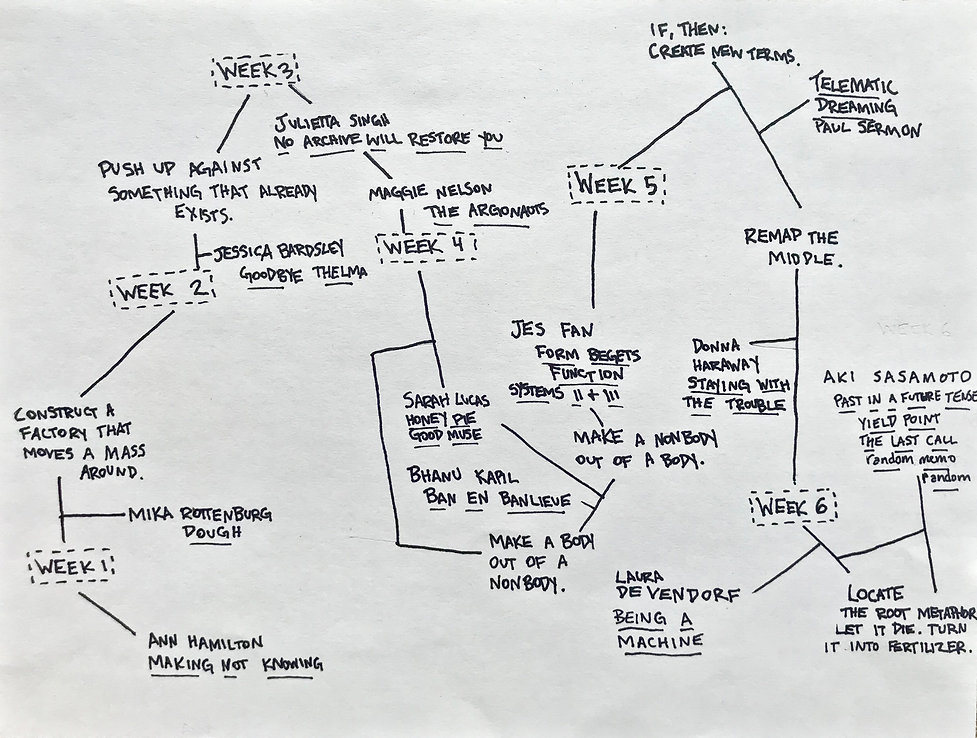 IF, THEN:
CREATE NEW TERMS.
WEEK 3
TELEMATIC
DREAMING
PAUL SERMON
JULIETTA SINGH
NO ARCHIVE WILL RESTORE YOU
PUSH UP AGAINST
SOMETHING THAT ALREADY
EXISTS.
MAGGIE NELSON
THE ARGONAUTS
WEEK 5
WEEK 4
REMAP THE
MIDDLE.
JESSICA BARDSLEY
GOODBYE THELMA
WEEK 2
JES FAN
FORM BEGETS
FUNCTION
SYSTEMS II + III
WEEK 6
DONNA
HARAWAY
STAYING WITH
THE TROUBLE
AKI SASAMOTO
PAST IN A FUTURE TENSE
YIELD POINT
THE LAST CALL
random memo
random
CONSTRUCT A
FACTORY THAT
MOVES A MASS
AROUND.
SARAH LUCAS
HONEY PIE
GOOD MUSE
MAKE A NONBODY
OUT OF A BODY.
BHANU KAPIL
BAN EN BANLIEUE
WEEK 6
MIKA ROTTENBURG
DOUGH
MAKE A BODY
OUT OF A
NONBODY.
WEEK 1
LAURA
DEVENDORF
BEING A
MACHINE
LOCATE
THE ROOT METAPHOR
LET IT DIE. TURN
IT INTO FERTILIZER.
ANN HAMILTON
MAKING NOT KNOWING